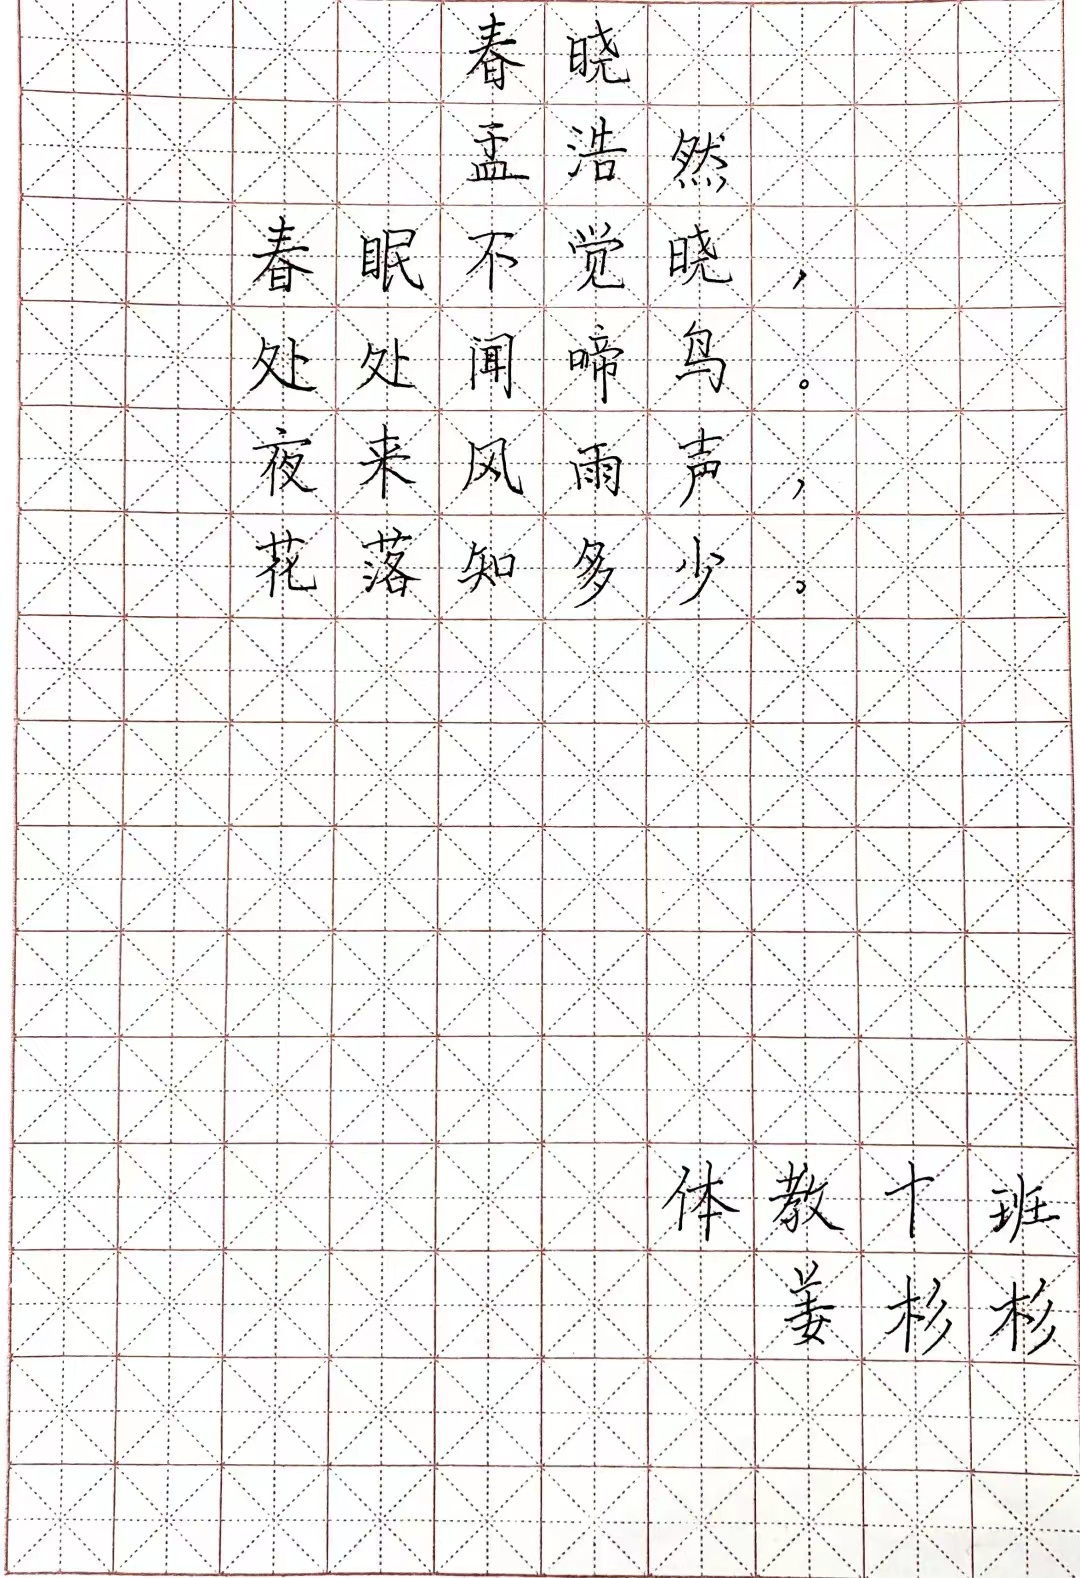 春晓
孟浩然
春眠不觉晓，
处处闻啼鸟。
夜来风雨声，
花落知多少。
体教十班
姜杉杉